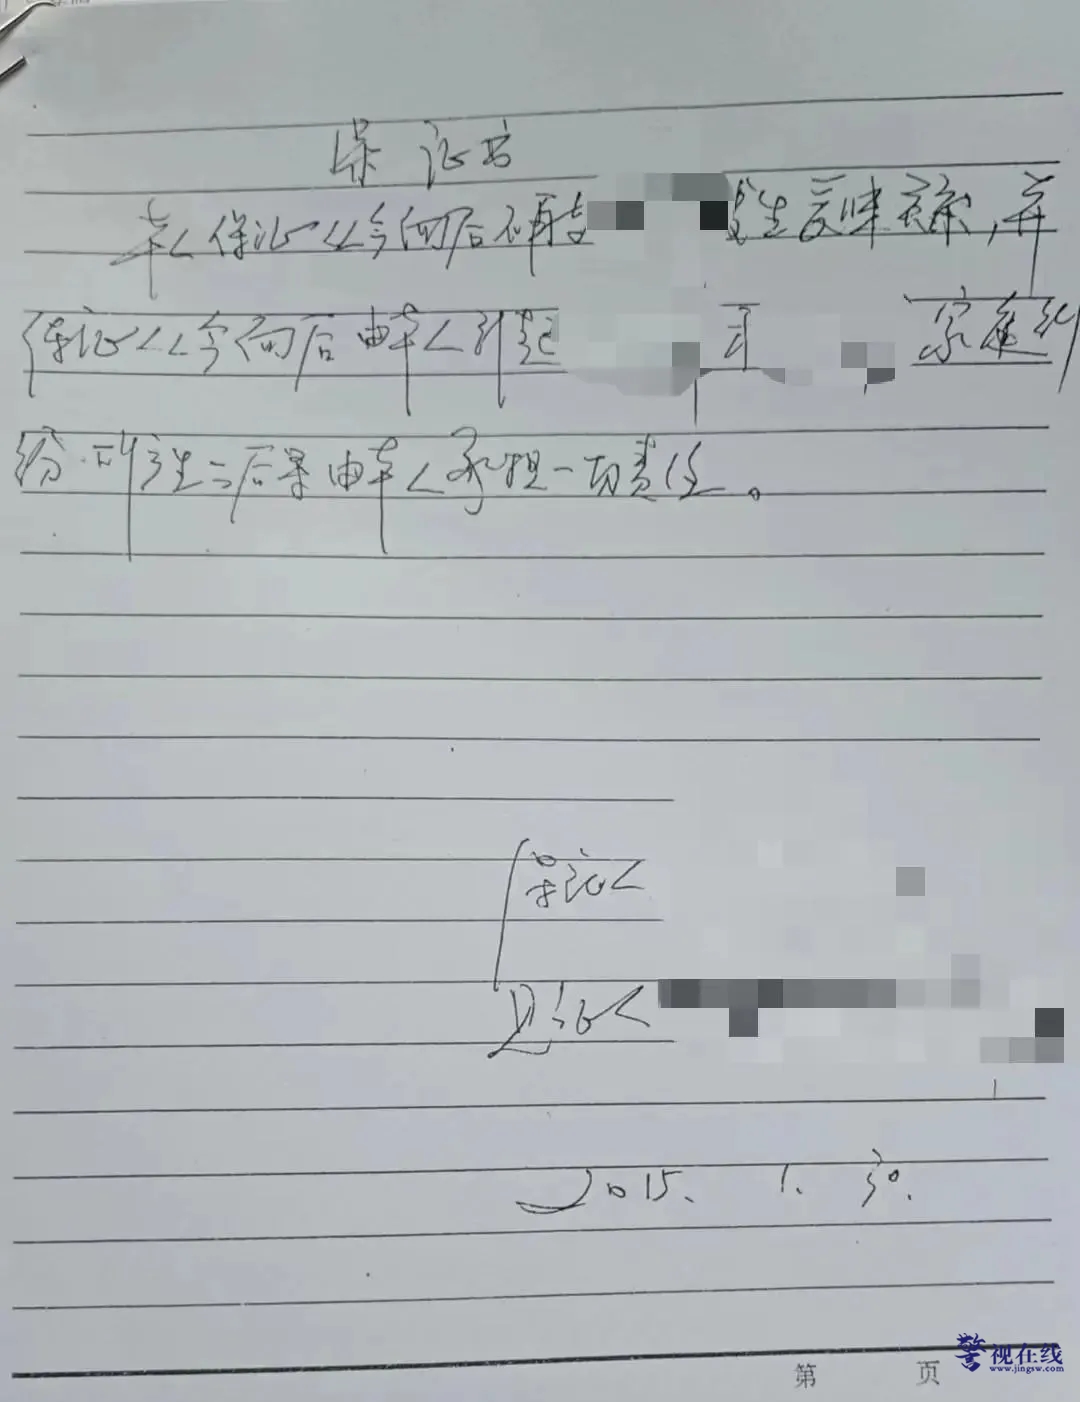 保证书
本人保证从今向后不再与 发生爱昧关系，并
保证从今向后由本人引起 家庭纠
纷所产生二后果由本人承担一切责任。
保证人
见证人
2015、1、30.
第 页
警视在线
www.jingsw.com